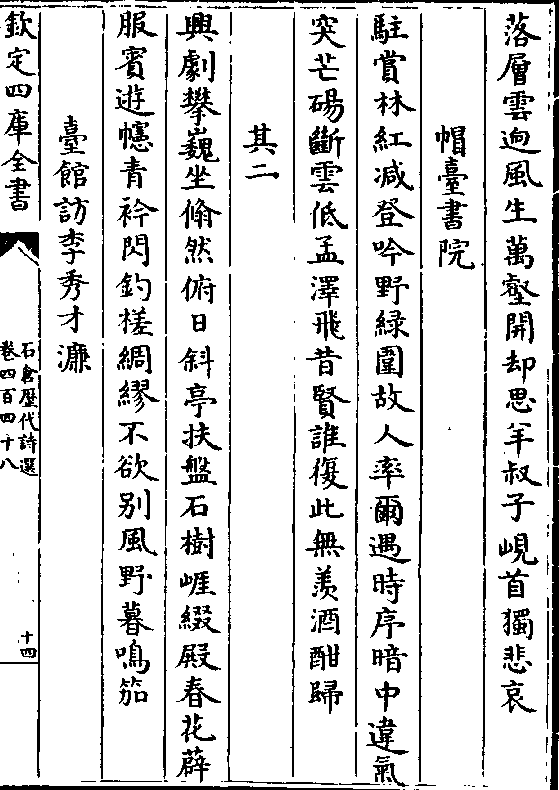 落層雲逈風生萬壑開却思羊叔子峴首獨悲哀
帽臺書院
駐賞林紅减登吟野綠圍故人率爾遇時序暗中違氣
突芒碭斷雲低孟澤飛昔賢誰復此無羨酒酣歸
其二
興劇攀巍坐翛然俯日斜亭扶盤石樹崕綴殿春花薜
服賓遊幰青衿閃釣槎綢繆不欲别風野暮鳴笳
臺館訪李秀才濂
欽定四庫全書
石倉歴代詩選
卷四百四十八
十四